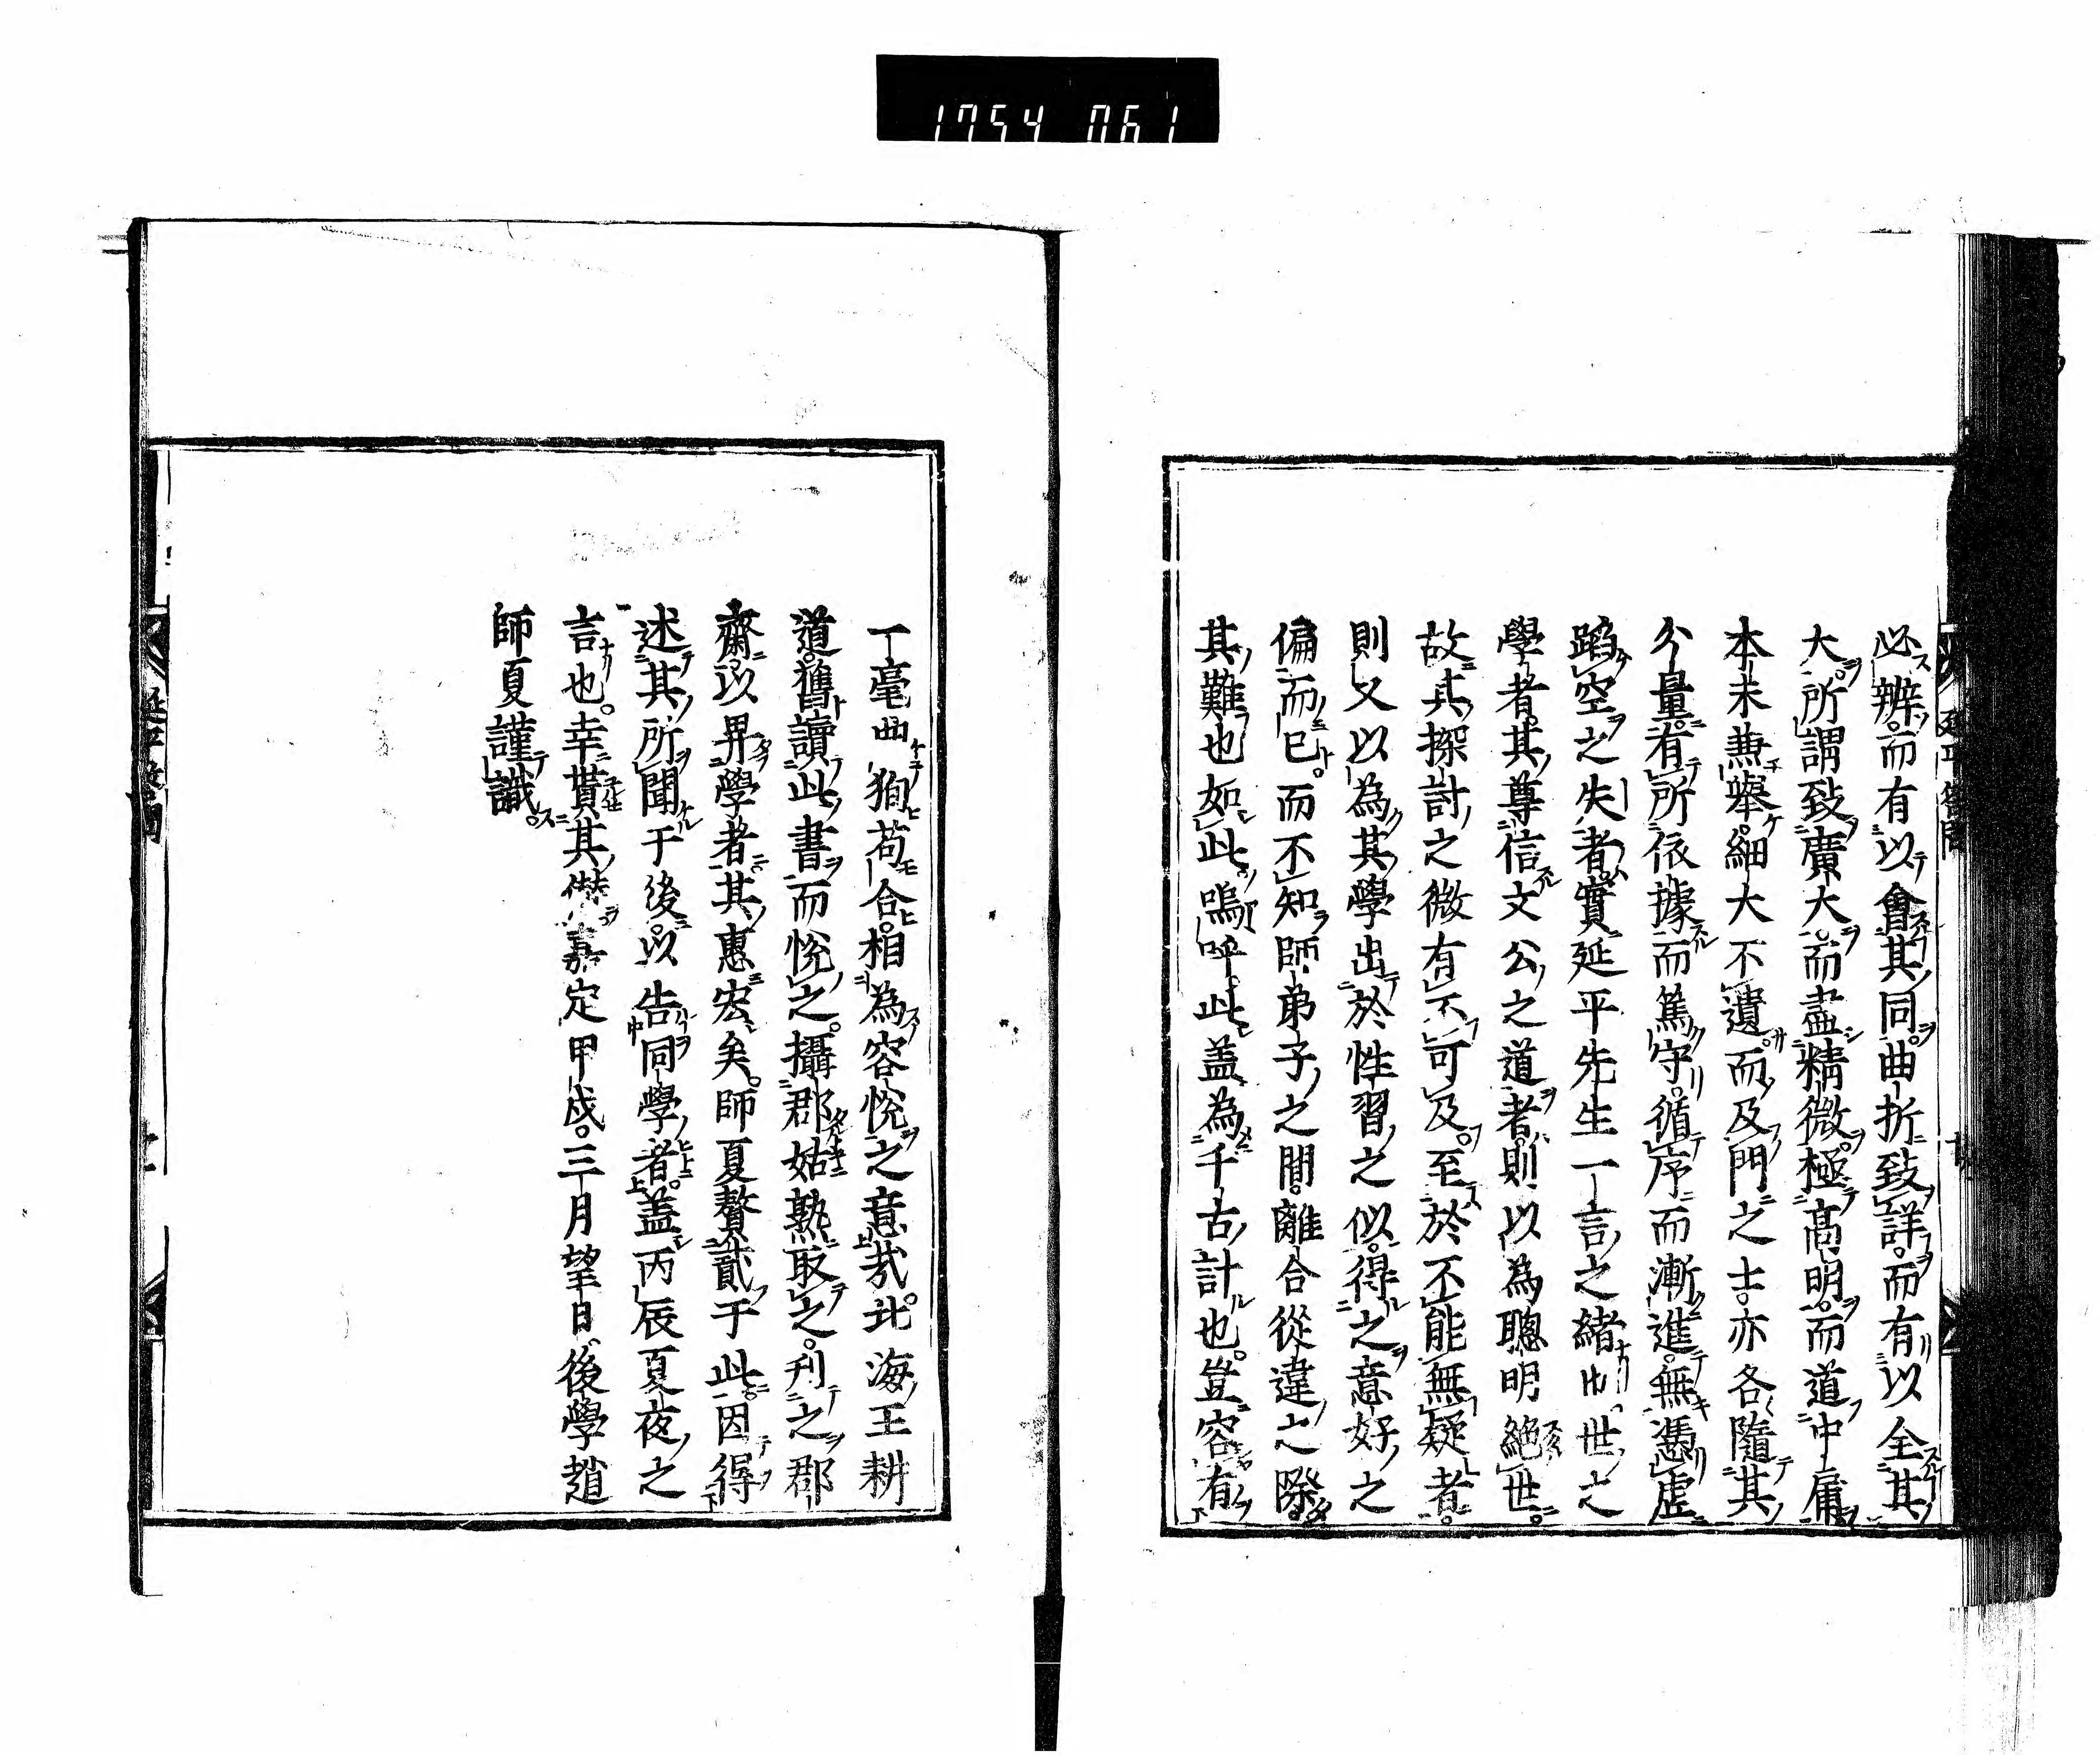 1754 061
必辨而有以會其同曲折致詳而有以全其
大所謂致廣大而盡精微極高明而道中庸
本末兼舉細大不遺而及門之士亦各隨其
分量有所依據而篤守循序而漸進無憑虛
蹈空之失者實延平先生一言之緒也世之
學者其尊信文公之道者則以為聰明絕世
故其探討之微有不可及至於不能無疑者
則又以為其學出於性習之似得之意好之
偏而已而不知師弟子之間離合從違之際
其難也如此嗚呼此盖為千古計也豈容有
一毫曲狥苟合相為容悅之意哉北海王耕
道舊讀此書而悅之攝郡姑熟取之刋之郡
齋以畀學者其惠宏矣師夏贅貳于此因得
述其所聞于後以告同學者盖丙辰夏夜之
言也幸貰其僣嘉定甲戌三月望日後學趙
師夏謹識